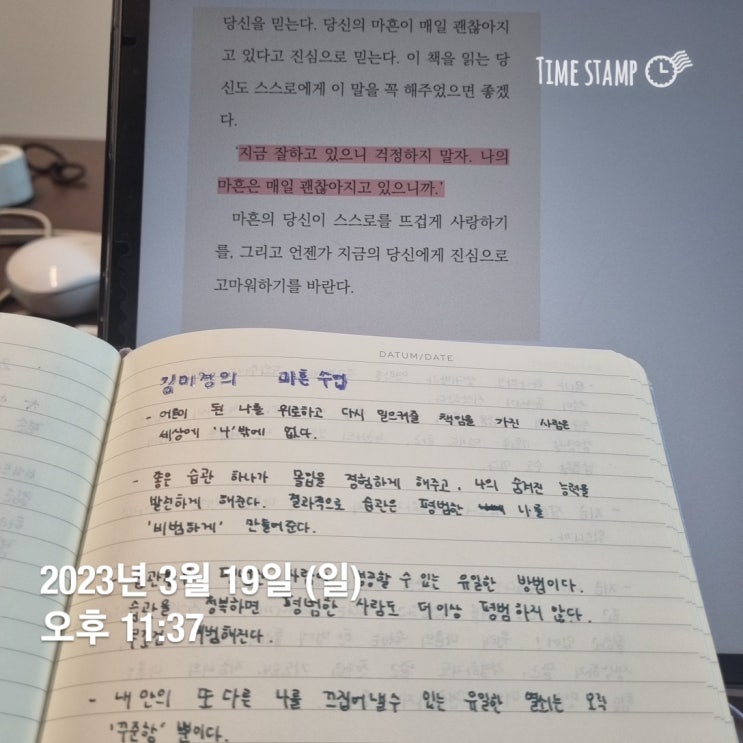 당신을 믿는다. 당신의 마흔이 매일 괜찮아지
고 있다고 진심으로 믿는다. 이 책을 읽는 당
신도 스스로에게 이 말을 꼭 해주었으면 좋겠
다.
'지금 잘하고 있으니 걱정하지 말자. 나의
마흔은 매일 괜찮아지고 있으니까.'
마흔의 당신이 스스로를 뜨겁게 사랑하기
를, 그리고 언젠가 지금의 당신에게 진심으로
고마워하기를 바란다.
TIME STAMP
DATUM/DATE
김미경의 마흔 수업
- 어른이 된 나를 위로하고 다시 일으켜줄 책임을 가진 사람은
세상에 '나'밖에 없다.
- 좋은 습관 하나가 몰입을 경험하게 해주고, 나의 숨겨진 능력을
발견하게 해준다. 결과적으로 습관은 평범한 나를
'비범하게' 만들어준다.
수 있는 유일한 방법이다.
습관을 정복하면 평범한 사람도 더이상 평범하지 않다.
2023년 3월 19일 (일)
오후 11:37
- 내 안의 또 다른 나를 끄집어낼 수 있는 유일한 열쇠는 오직
'꾸준함' 뿐이다.